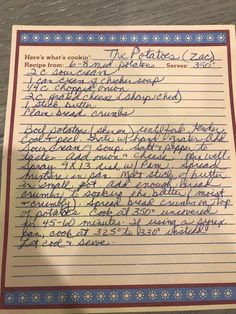 Here's what's cookin': The Potatoes (Zac)
Recipe from: 6-8 med potatoes Serves: 350°
2 c sour cream
1 can cream of chicken soup
1/4 c chopped onion
2 c grated cheese (sharp ched)
1 stick butter
Plain bread crumbs
Boil potatoes (skin on) until fork tender
Cool & peel. Grate w/hand grater. Add
sour cream & soup. Salt & pepper to
taste. Add onion & cheese. Mix well.
Spray 9x13 dish w/Pam. Spread
mixture in pan. Melt stick of butter
in small pot add enough bread
crumbs soaking the butter (moist
& crumbly). Spread bread crumbs on top
of potatoes. Cook at 350° uncovered
for 45-60 minutes. If using a pyrex
pan, cook at 325° to 330° instead.
Let cool & serve.